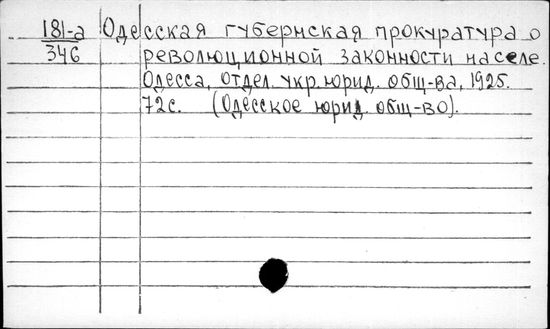 181-а Одесская губернская прокуратура о
346 революционной законности на селе.
Одесса, отдел. укр. юрид. общ-ва, 1925.
72с. (Одесское юрид. общ-во).